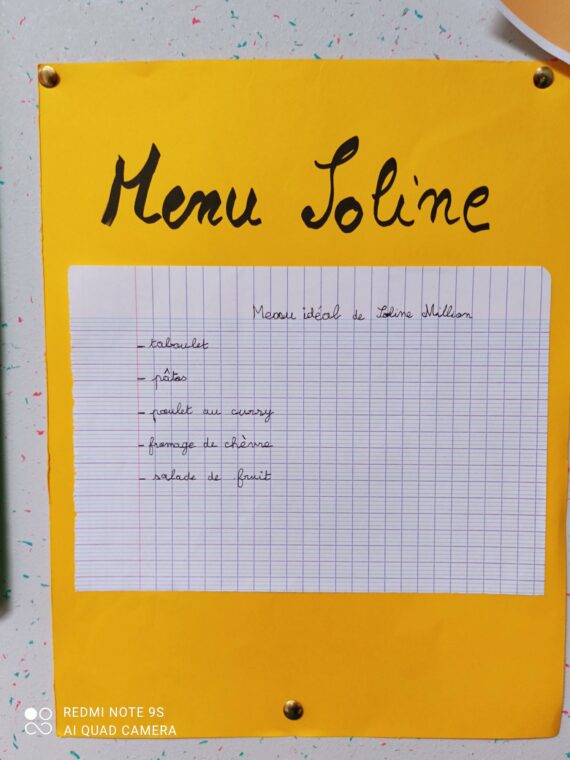 Menu Soline
Menu idéal de Soline Million
- taboulet
- pâtes
- poulet au curry
- fromage de chèvre
- salade de fruit
REDMI NOTE 9S
AI QUAD CAMERA